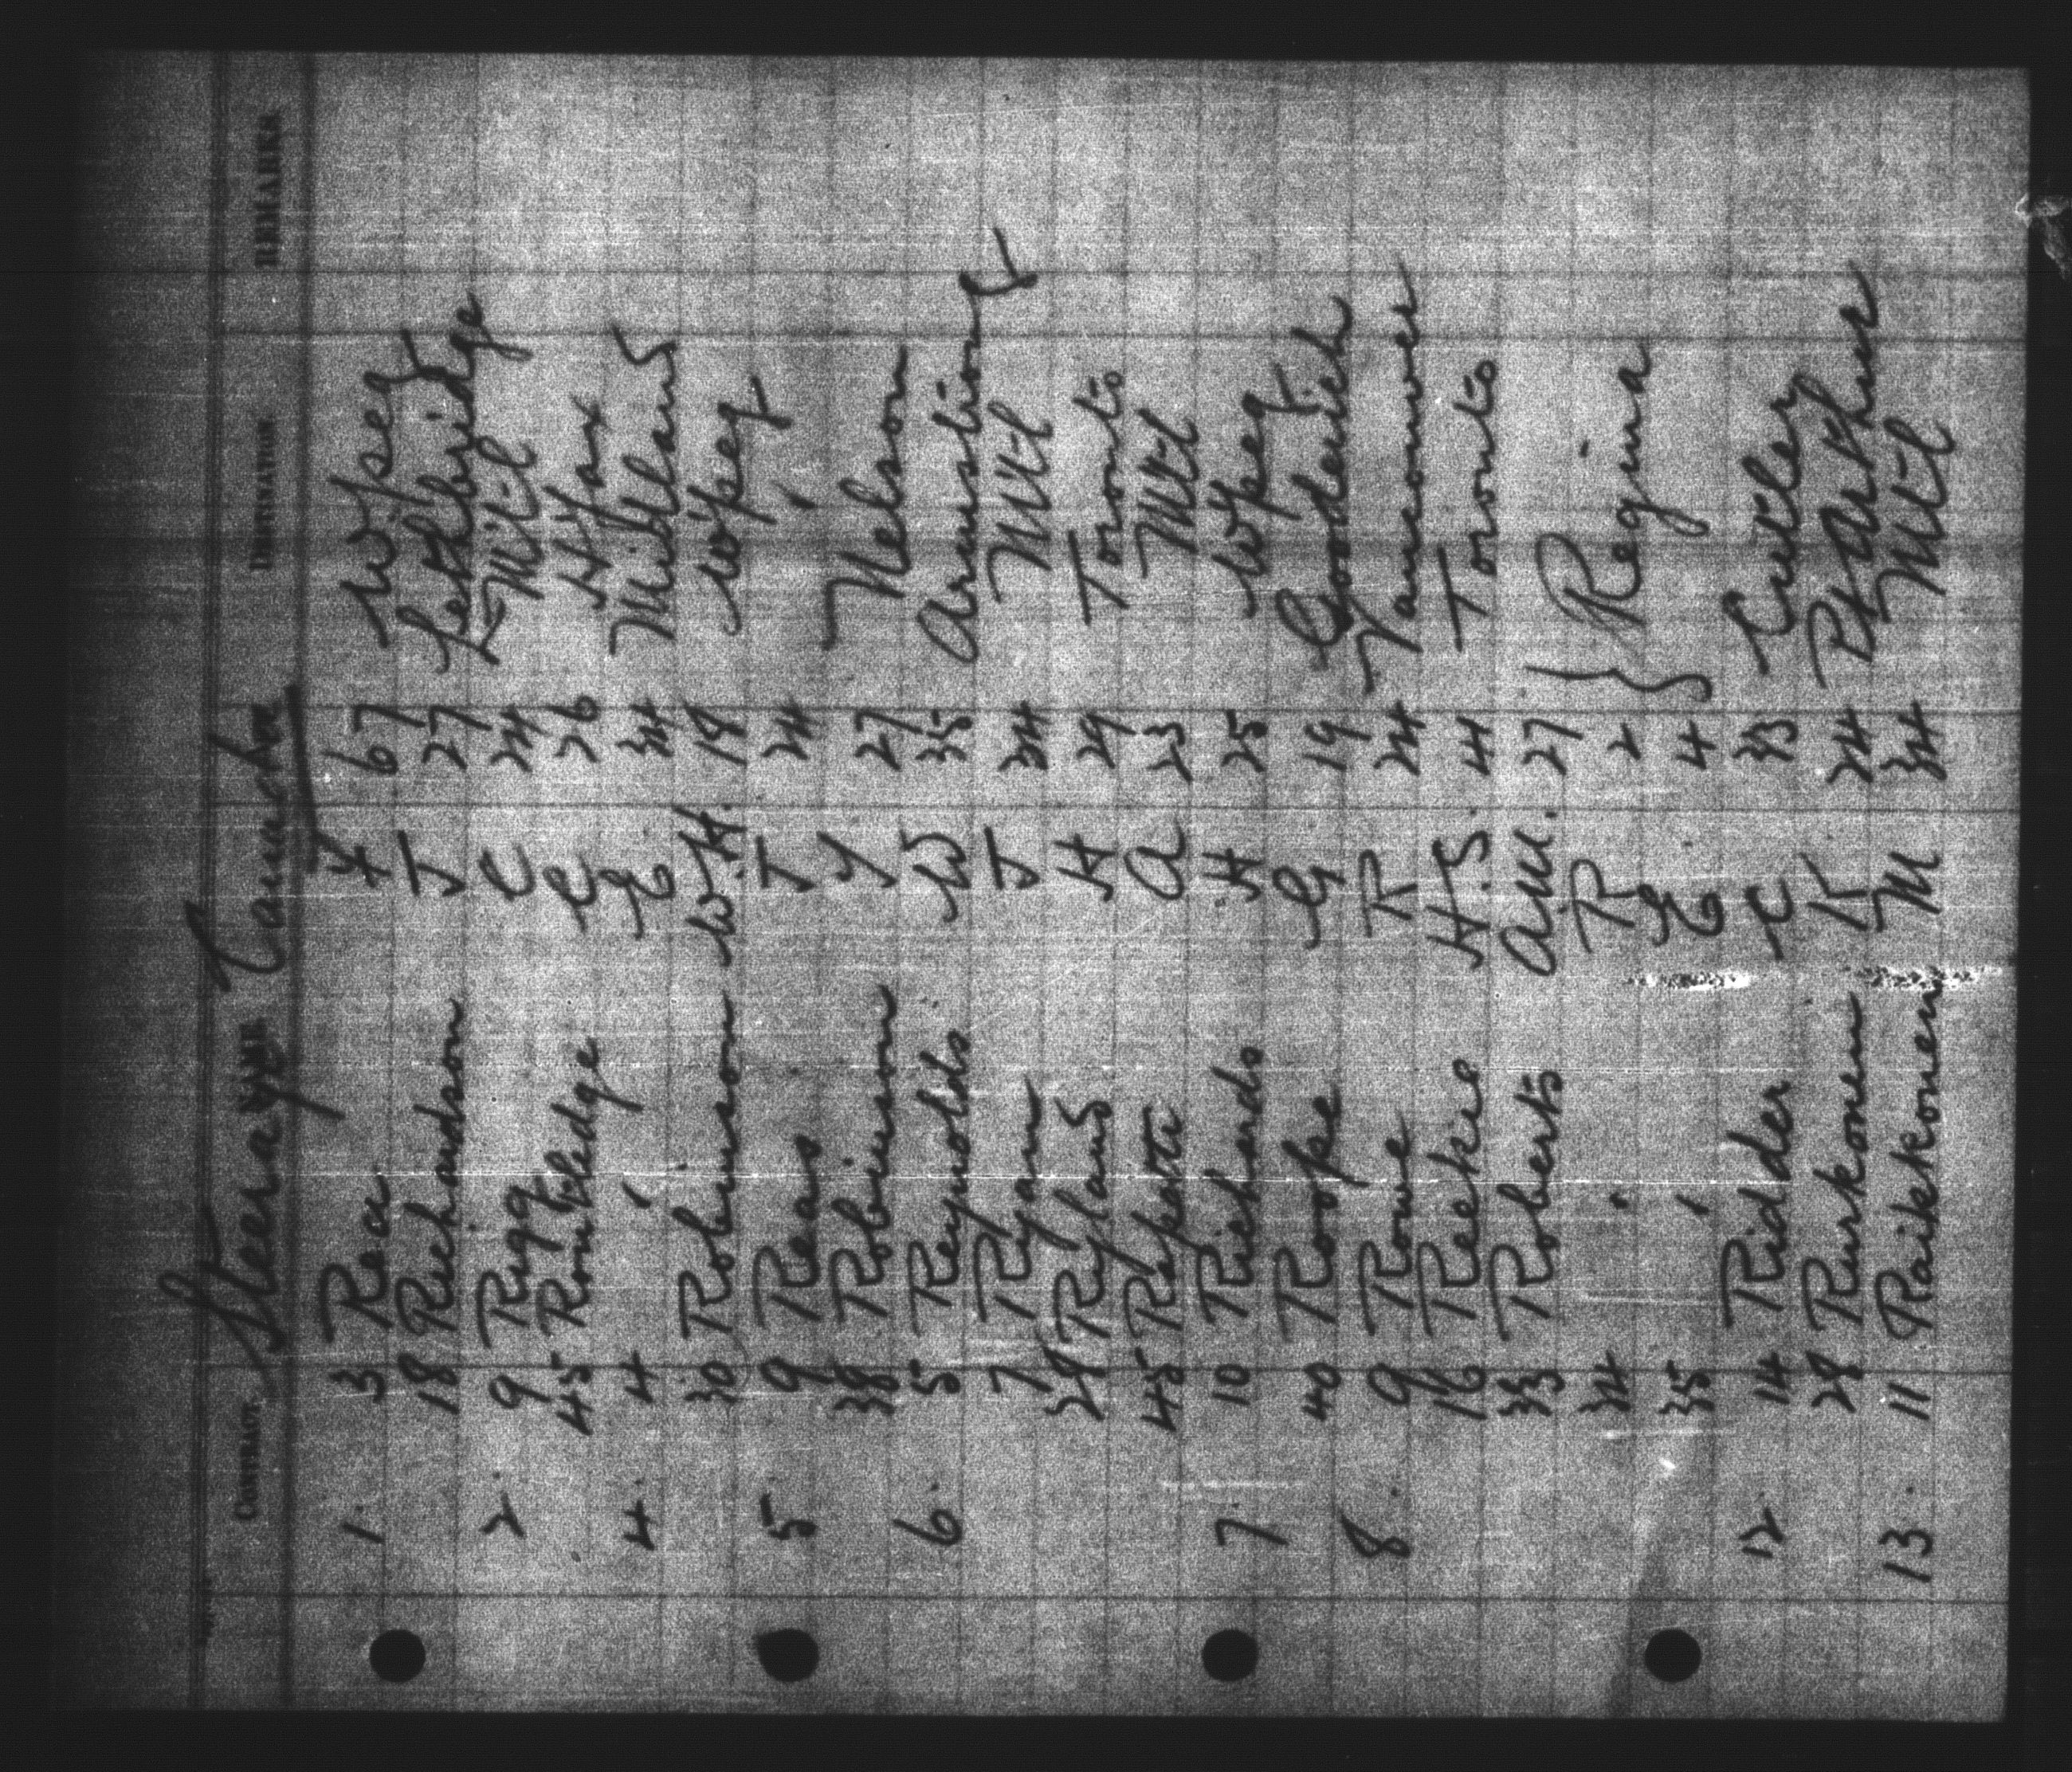 Steerage Canada
CONTRACT NAME DESTINATION REMARKS
1. 3 Rea F 67 W'peg
18 Richardson J 27 Lethbridge
2. 9 Rigg C 24 Mtl
45 Routledge C 26 H'fax
4. 4 " E 34 Midland
30 Robinson W.H. 18 W'peg
5 9 Reas J 24 "
38 Robinson J 27 Nelson
6. 5 Reynolds W 35 Armstrong
7 Ryan J 34 Mtl
28 Rylands H 29 Toronto
45 A 23 Mtl
7. 10 Richards H 25 W'peg
40 Rooke G 19 Goderich
8. 9 Rowe R 24 Vancouver
16 Reekie H.S. 41 Toronto
33 Roberts A.M. 27 } Regina
34 " R 2
35 " E 4
12. 14 Ridder C 33 Cutler
28 Rurkonen K 24 Pt Arthur
13. 11 Raikkonen M 34 Mtl